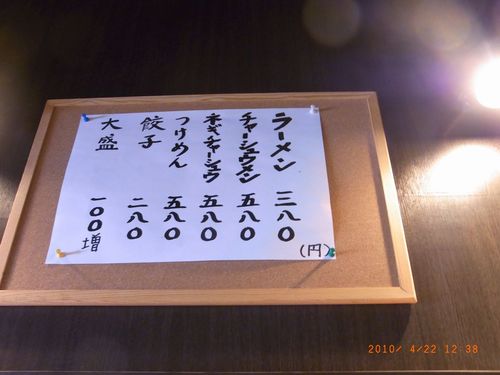 ラーメン 三八〇
チャーシュウメン 五八〇
ネギチャーシュウ 五八〇
つけめん 五八〇
餃子 二八〇
大盛 一〇〇増
(円)
2010/ 4/22 12:38